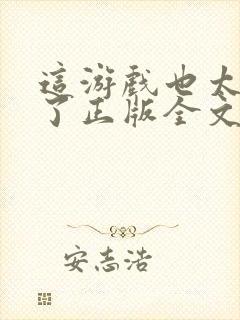 這游戲也太
了正版全文
安志浩